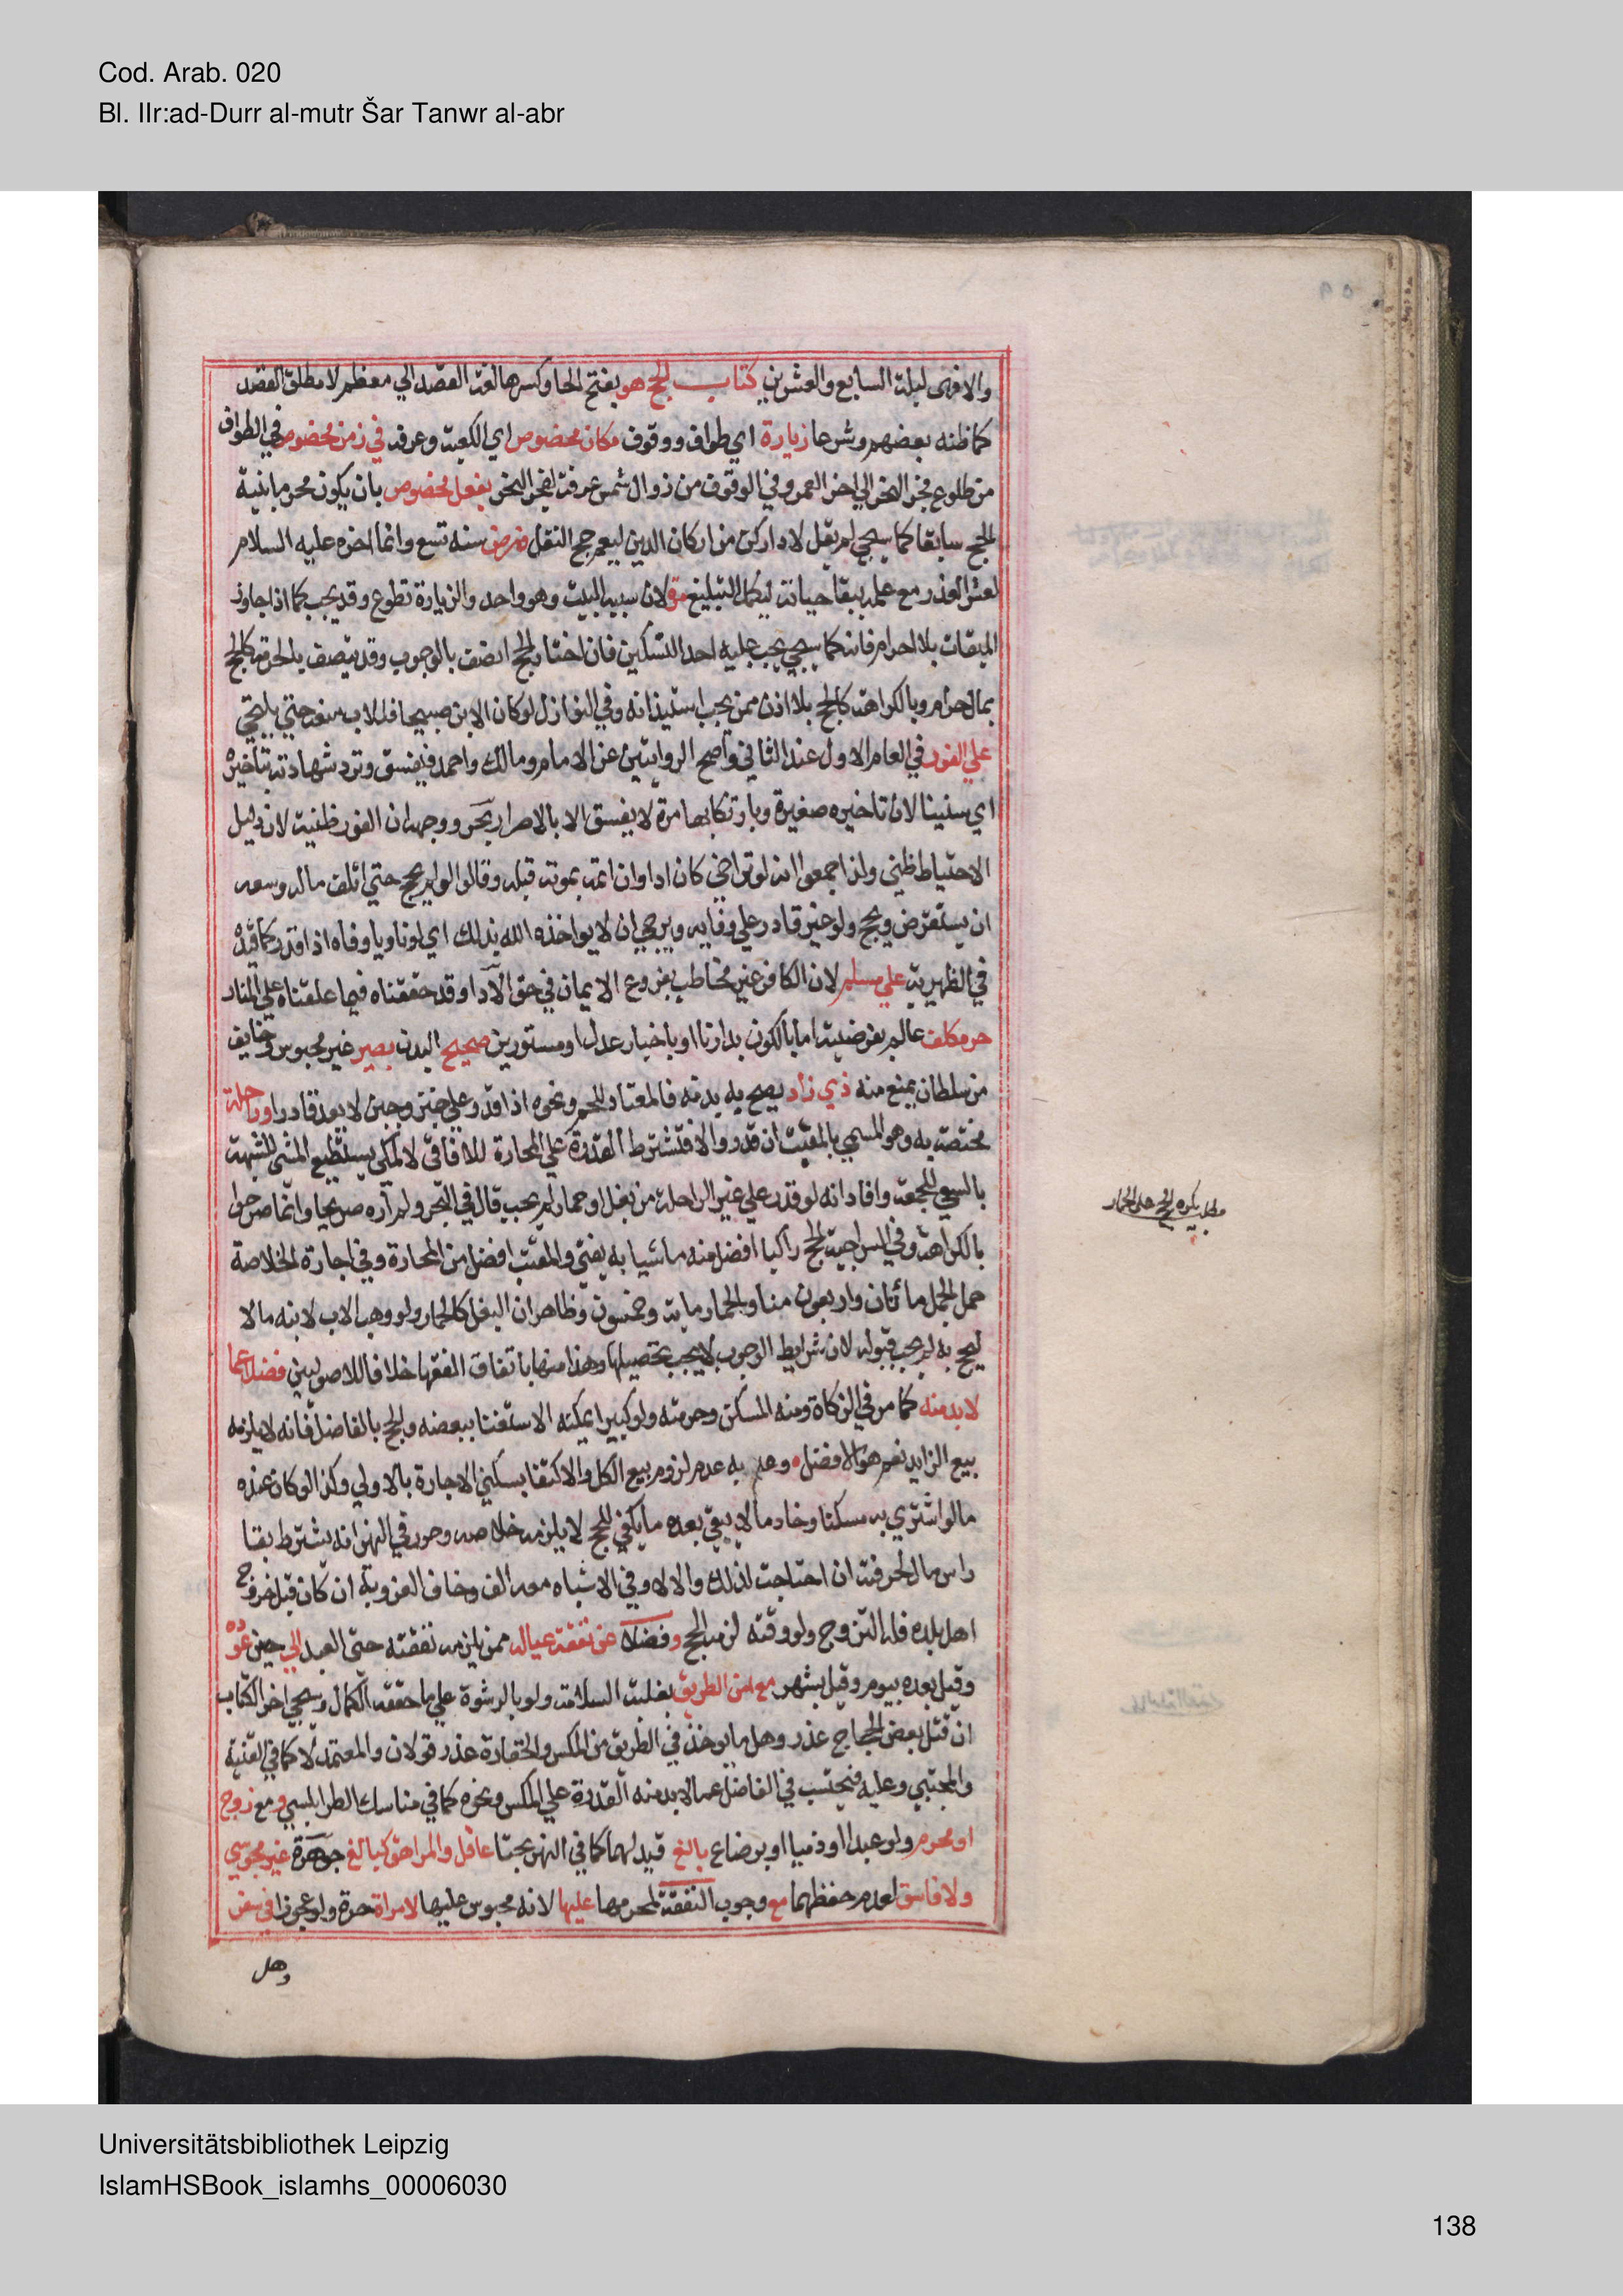 Cod. Arab. 020
Bl. IIr:ad-Durr al-mutr Šar Tanwr al-abr
والا فهي ليلة السابع والعشرين كتاب الحج هو بفتح الحا وكسرها لغة القصد الي معظم لا مطلق القصد
كما ظنه بعضهم وشرعا زيارة اي طواف ووقوف مكان مخصوص اي الكعبة وعرفه في زمن مخصوص في الطواف
من طلوع فجر النحر الي اخر العمر وفي الوقوف من زوال شمس عرفة لفجر النحر بفعل مخصوص بان يكون محرما بنية
الحج سابقا كما سيجي لم يقل لادا ركن من اركان الدين ليعم حج النفل فرض سنه تسع وانما اخره عليه السلام
لعشر لعذر مع علمه ببقا حياته ليكمل التبليغ مرة لان سببه البيت وهو واحد والزيارة تطوع وقد يجب كما اذا جاوز
الميقات بلا احرام فانه كما سيجي يجب عليه احد النسكين فان اختار الحج اتصف بالوجوب وقد يتصف بالحرمة كالحج
بمال حرام وبالكراهة كالحج بلا اذن ممن يجب استيذانه وفي النوازل لو كان الابن صبيحا فللاب منعه حتي يلتحي
علي الفور في العام الاول عند الثاني واصح الروايتين عن الامام ومالك واحمد فيفسق وترد شهادته بتاخيره
اي سنينا لان تاخيره صغيرة وبارتكابها مرة لا يفسق الا بالاصرار بحر ووجهه ان الفور ظنية لان دليل
الاحتياط ظني ولذا اجمعوا انه لو تراخي كان ادا وان اثم بموته قبله وقالوا لو لم يحج حتي اتلف ماله وسعه
ان يستقرض ويحج ولو غير قادر علي وفايه ويرجي ان لا يواخذه الله بذلك اي لو ناويا وفاه اذا قدر كما قيده
في الظهيرية علي مسلم لان الكافر غير مخاطب بفروع الايمان في حق الادا وقد حققناه فيما علقناه علي المنار
حر مكلف عالم بفرضيته اما بالكون بدارنا او باخبار عدل او مستورين صحيح البدن بصير غير محبوس وخايف
من سلطان يمنع منه ذي زاد يصح به بدنه فالمعتاد للحم ونحوه اذا قدر علي خبز وجبن لا يعد قادرا وراحلة
مختصة به وهو المسمي بالمقتب ان قدر والا فتشترط القدرة علي المحارة للافاقي لا لمكي يستطيع المشي لشبهه
بالسعي للجمعة وافاد انه لو قدر علي غير الراحلة من بغل او حمار لم يجب قال في البحر ولم اره صريحا وانما صرحوا
بالكراهة وفي السراجية الحج راكبا افضل منه ماشيا به يفتي والمقتب افضل من المحارة وفي اجارة الخلاصة
حمل الجمل مائتان واربعون منا والحمار مايه وخمسون وظاهر ان البغل كالحمار ولو وهب الاب لابنه مالا
ليحج به لم يجب قبوله لان شرايط الوجوب لا يجب تحصيلها وهذا منها باتفاق الفقها خلافا للاصوليين فضلا عما
لابد منه كما مر في الزكاة ومنه المسكن وحرمته ولو كبيرا يمكنه الاستغنا ببعضه والحج بالفاضل فانه لا يلزمه
بيع الزايد نعم هو الافضل وعلم به عدم لزوم بيع الكل والاكتفا بسكني الاجارة بالاولي وكذا لو كان عنده
ما لو اشتري به مسكنا وخادما لا يبقي بعده ما يكفي للحج لا يلزمه خلاصه وحرر في النهر انه يشترط بقا
راس مال لحرفته ان احتاجت لذلك والا لا وفي الاشباه معه الف وخاف العزوبة ان كان قبل خروج
اهل بلده فله التزوج ولو وقته لزمه الحج وفضلا عن نفقة عياله ممن يلزمه نفقته حتي العبد الي حين عوده
وقيل بعده بيوم وقيل بشهر مع امن الطريق بغلبة السلامة ولو بالرشوة علي ما حققه الكمال وسيجي اخر الكتاب
ان قتل بعض الحجاج عذر وهل ما يوخذ في الطريق من المكس والخفارة عذر قولان والمعتمد لا كما في القنية
والمجتبي وعليه فيحتسب في الفاضل عما لابد منه القدرة علي المكس ونحوه كما في مناسك الطرابلسي ومع زوج
او محرم ولو عبدا او ذميا او برضاع بالغ قيد لهما كما في النهر بحثا عاقل والمراهق كبالغ جوهرة غير مجوسي
ولا فاسق لعدم حفظهما مع وجوب النفقة لمحرمها عليها لانه محبوس عليها لامراة حرة ولو عجوزا في سفر
وهل
مطلب يكره الحج على الحمار
Universitätsbibliothek Leipzig
IslamHSBook_islamhs_00006030
138